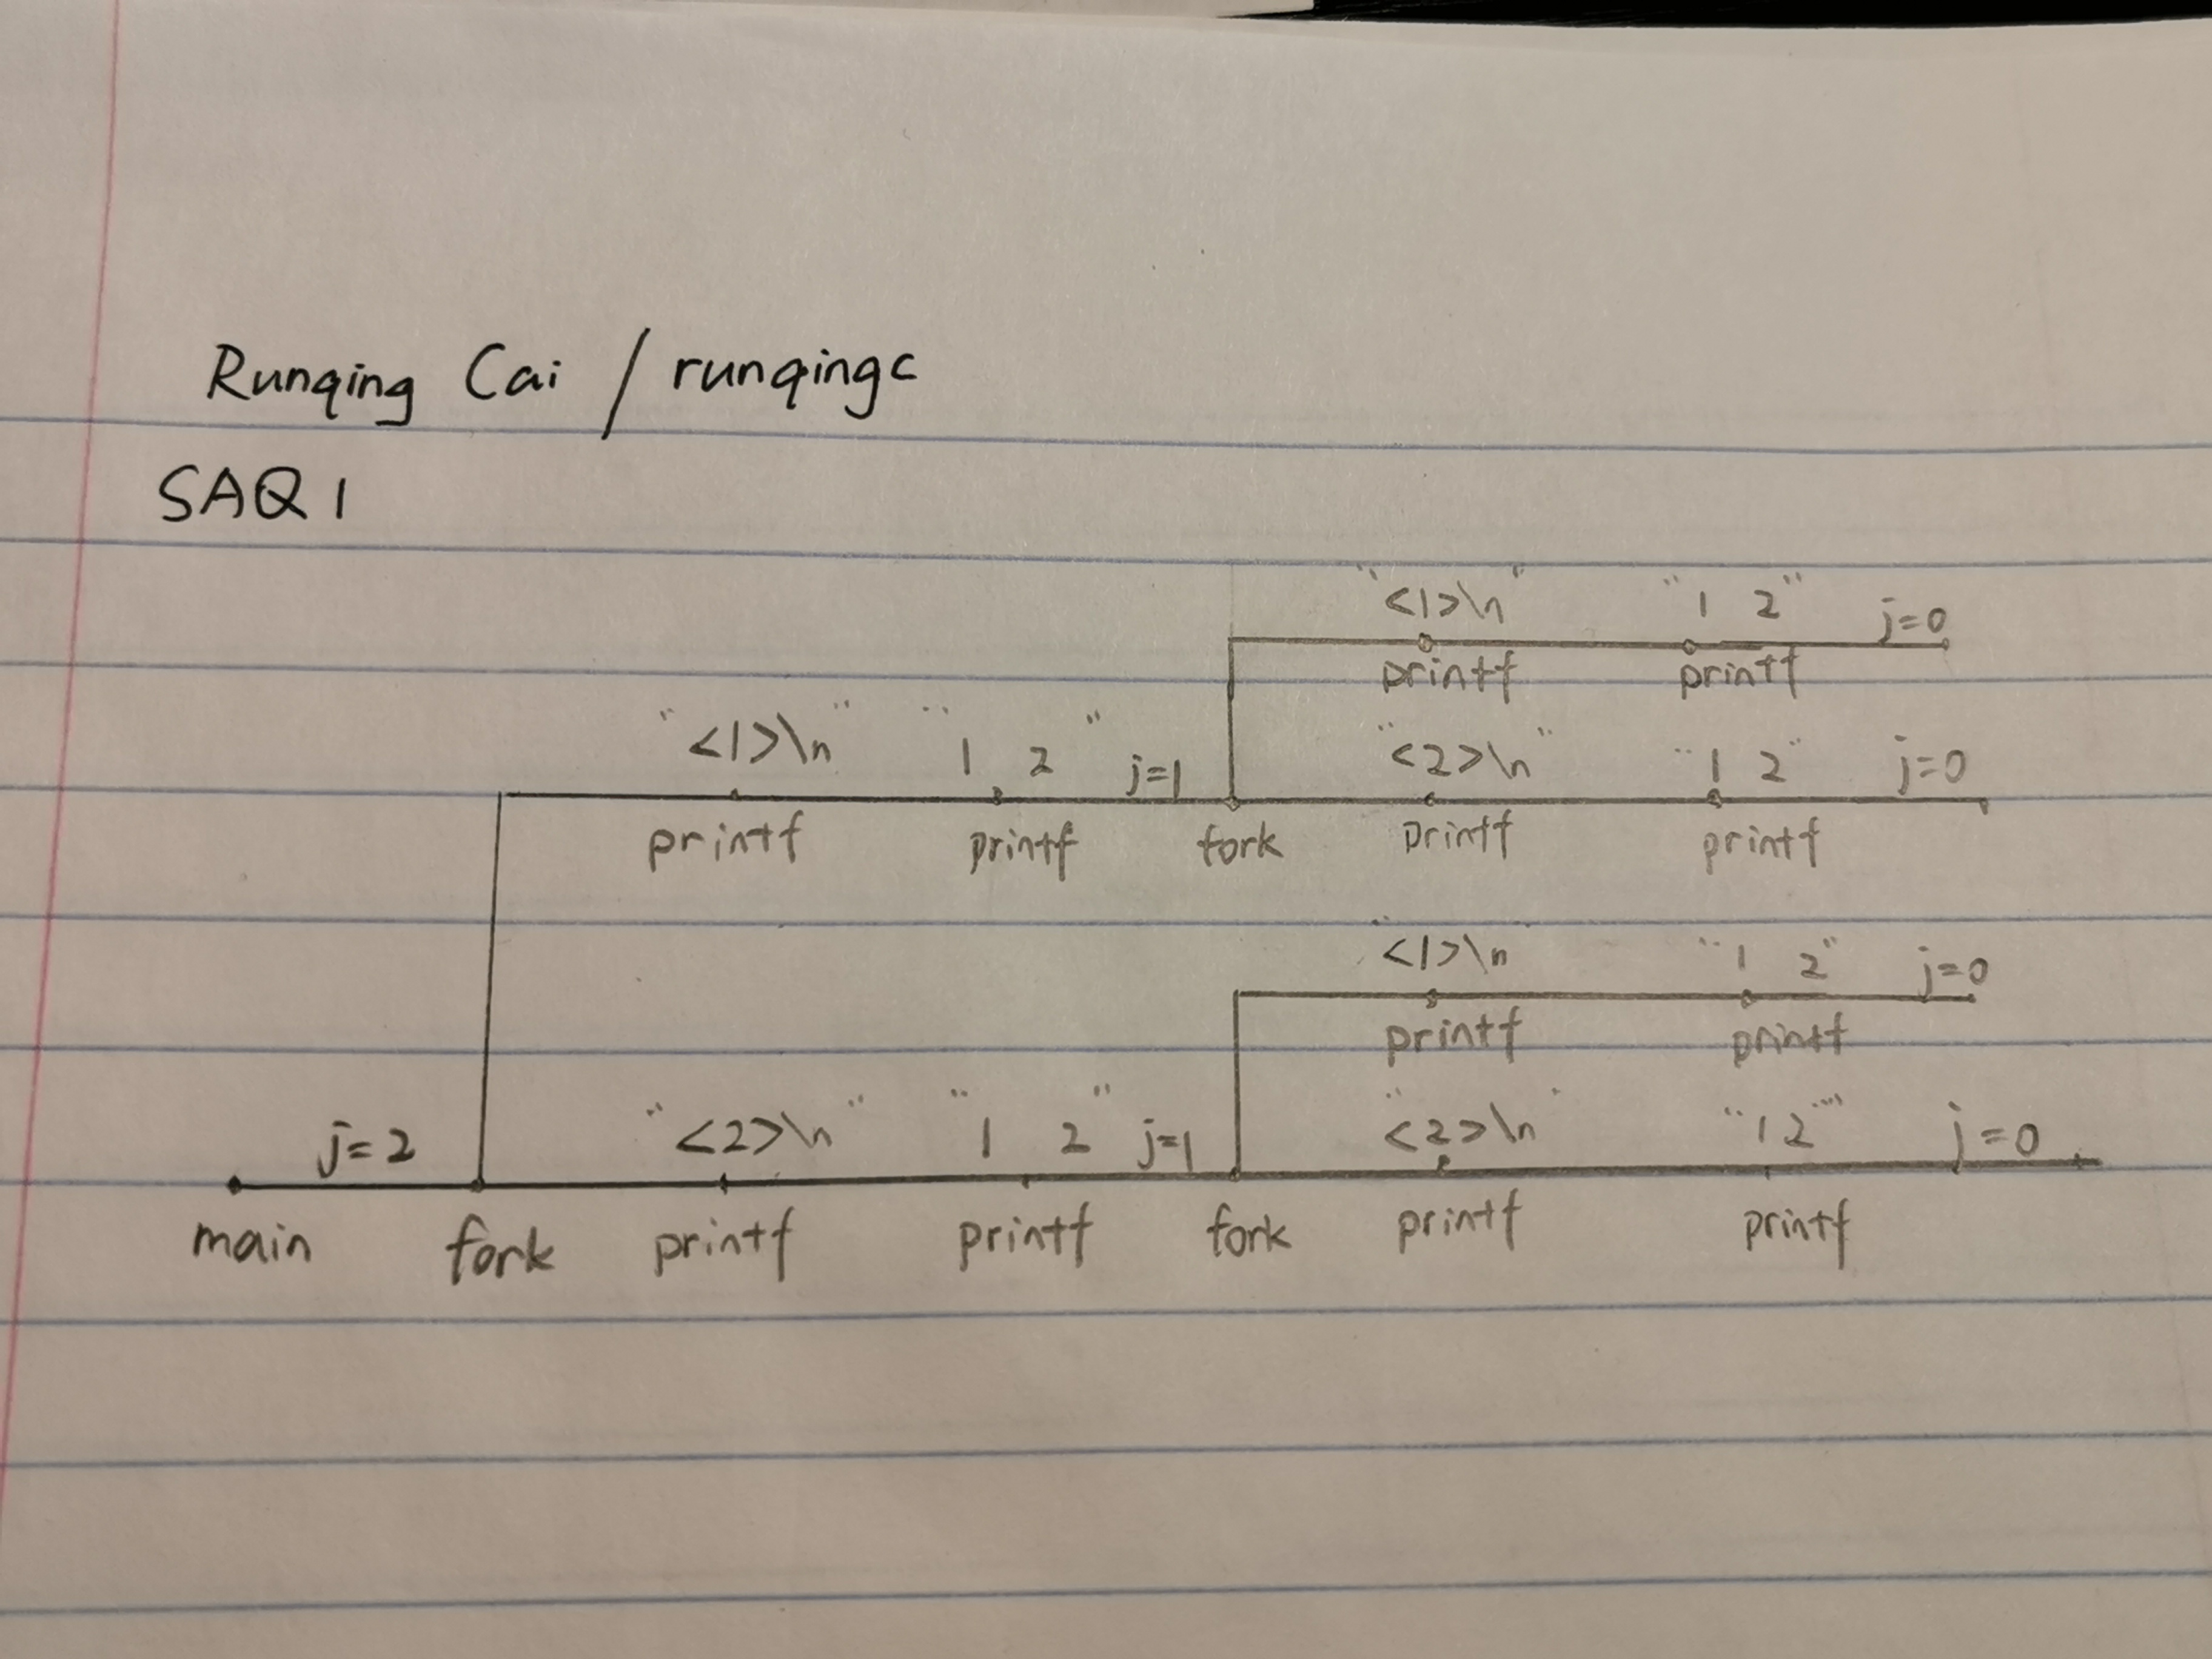 Runqing Cai / runqingc
SAQ 1
"<1>\n" "1 2" j=0
printf printf
"<1>\n" "1 2" j=1 "<2>\n" "1 2" j=0
printf printf fork printf printf
"<1>\n "1 2" j=0
printf printf
j=2 "<2>\n" "1 2" j=1 "<2>\n" "1 2"" j=0
main fork printf printf fork printf printf